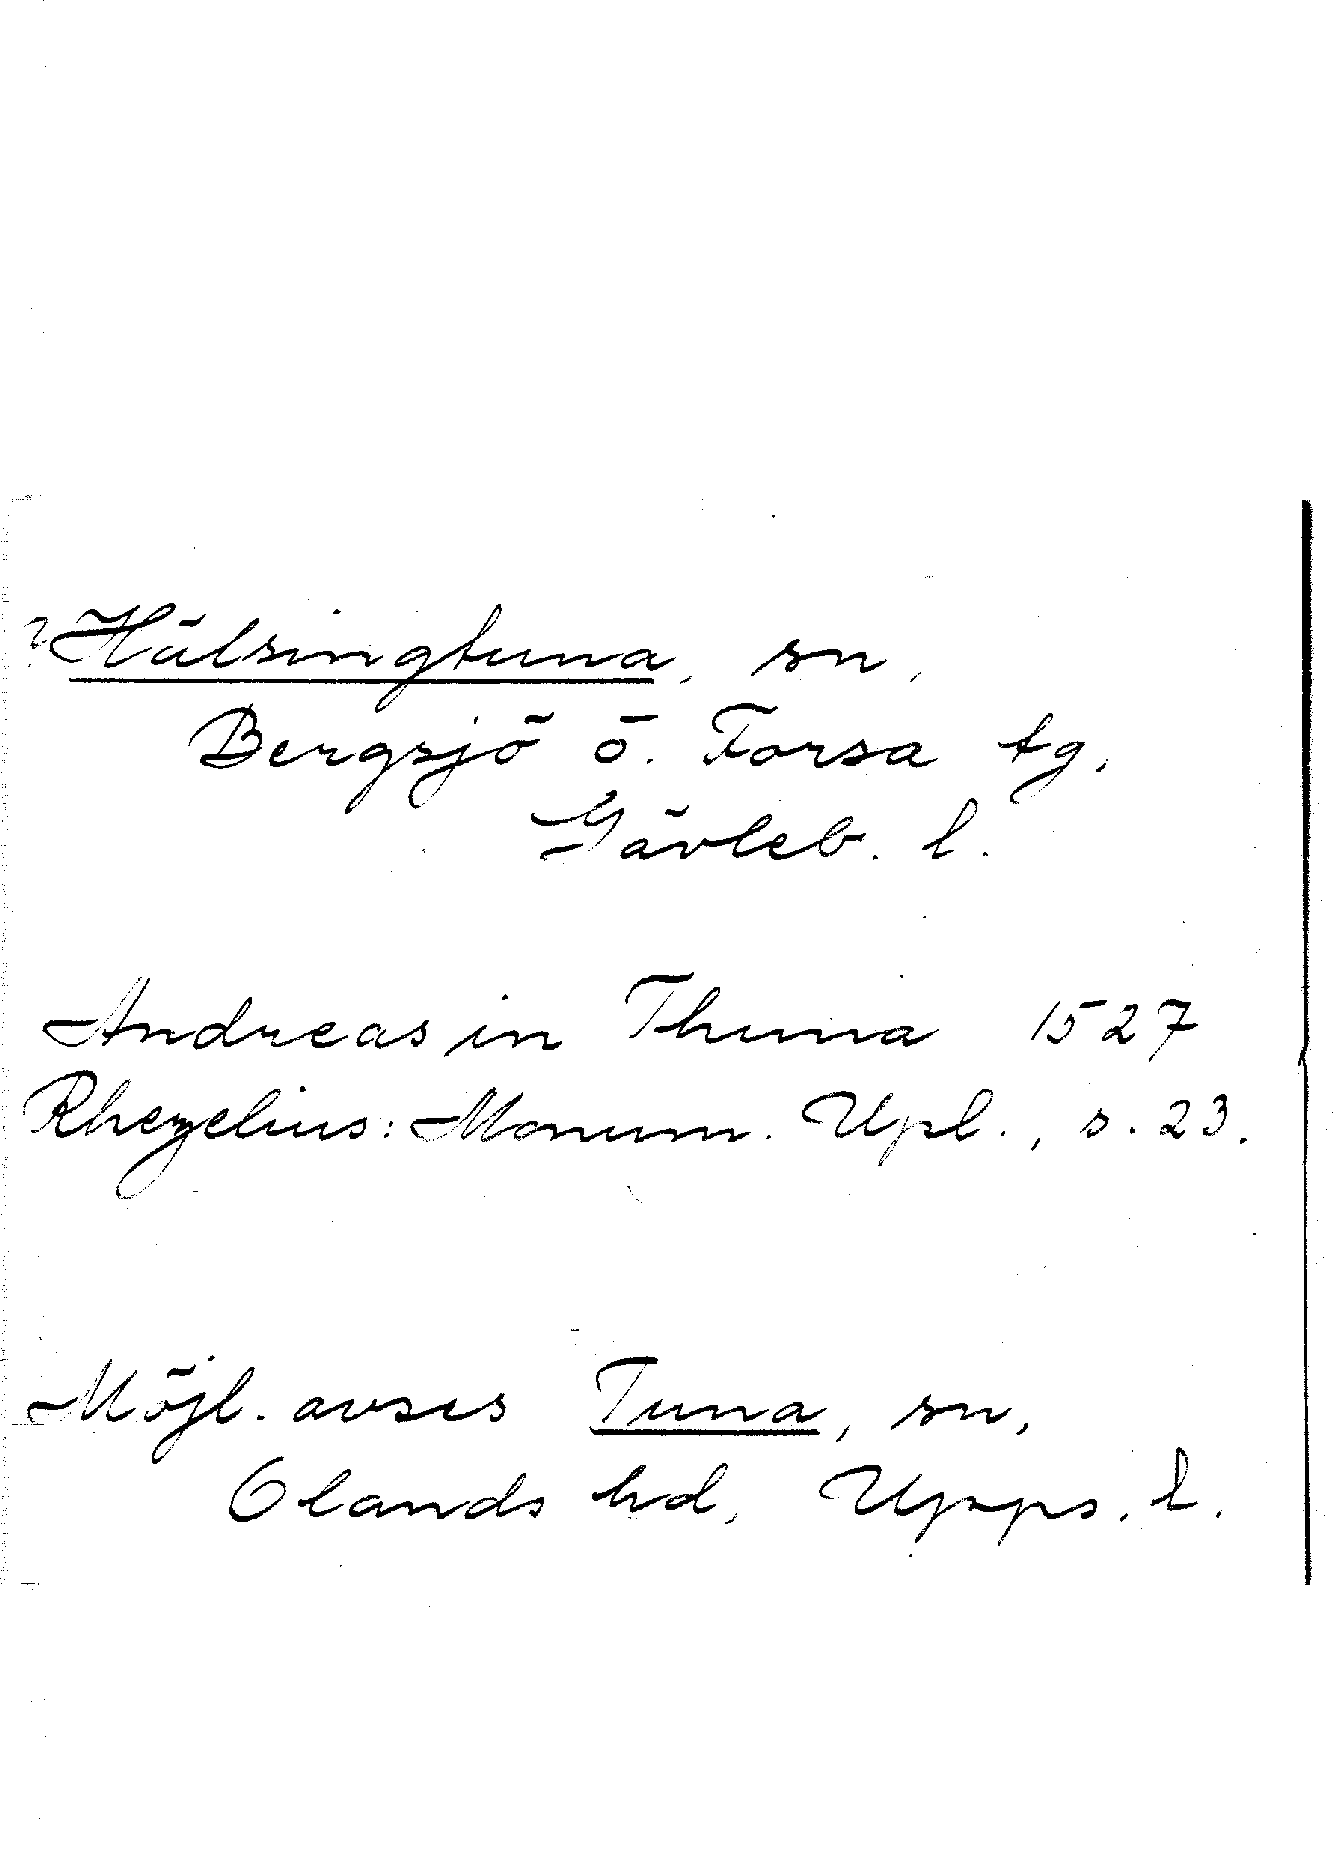 ? Hälsingtuna, sn,
Bergsjö o. Forsa tg,
Gävleb. l.
Andreas in Thuna 1527
Rhezelius: Monum. Upl., s. 23.
Möjl. avses Tuna, sn,
Olands hd, Upps. l.